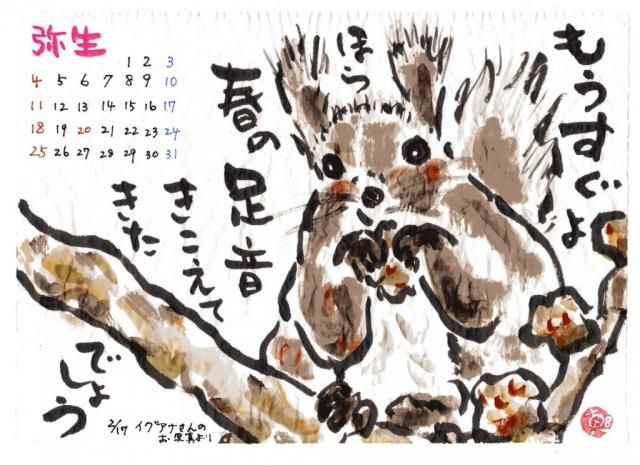 弥生
1 2 3
4 5 6 7 8 9 10
11 12 13 14 15 16 17
18 19 20 21 22 23 24
25 26 27 28 29 30 31
もうすぐよ
ほら
春の足音
きこえて
きた
でしょう
2/17 イグアナさんの
お写真より